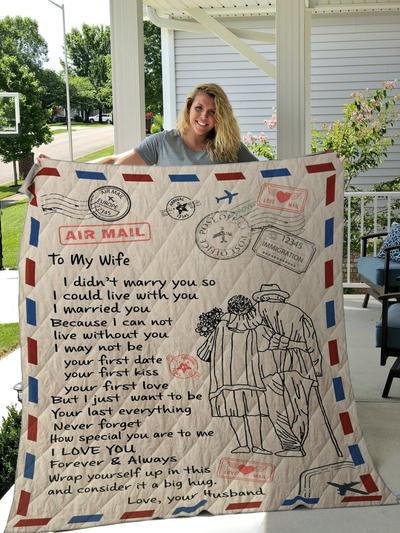 AIR MAIL
EUROPE
12345
POST OFFICE
POST OFFICE
LOVE MAIL
12345
IMMIGRATION
AIR MAIL
To My Wife
I didn't marry you so
I could live with you
I married you
Because I can not
live without you
I may not be
your first date
your first kiss
your first love
But I just want to be
Your last everything
Never forget
How special you are to me
I LOVE YOU
Forever & Always
Wrap yourself up in this
and consider it a big hug.
LOVE MAIL
Love, your Husband